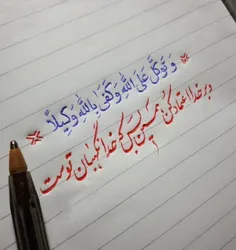 وَ تَوَكَّلْ عَلَى اللهِ وَ كَفَى بِاللهِ وَكِيلًا
و بر خدا اعتماد کن، همین بس که خدا نگهبان توست